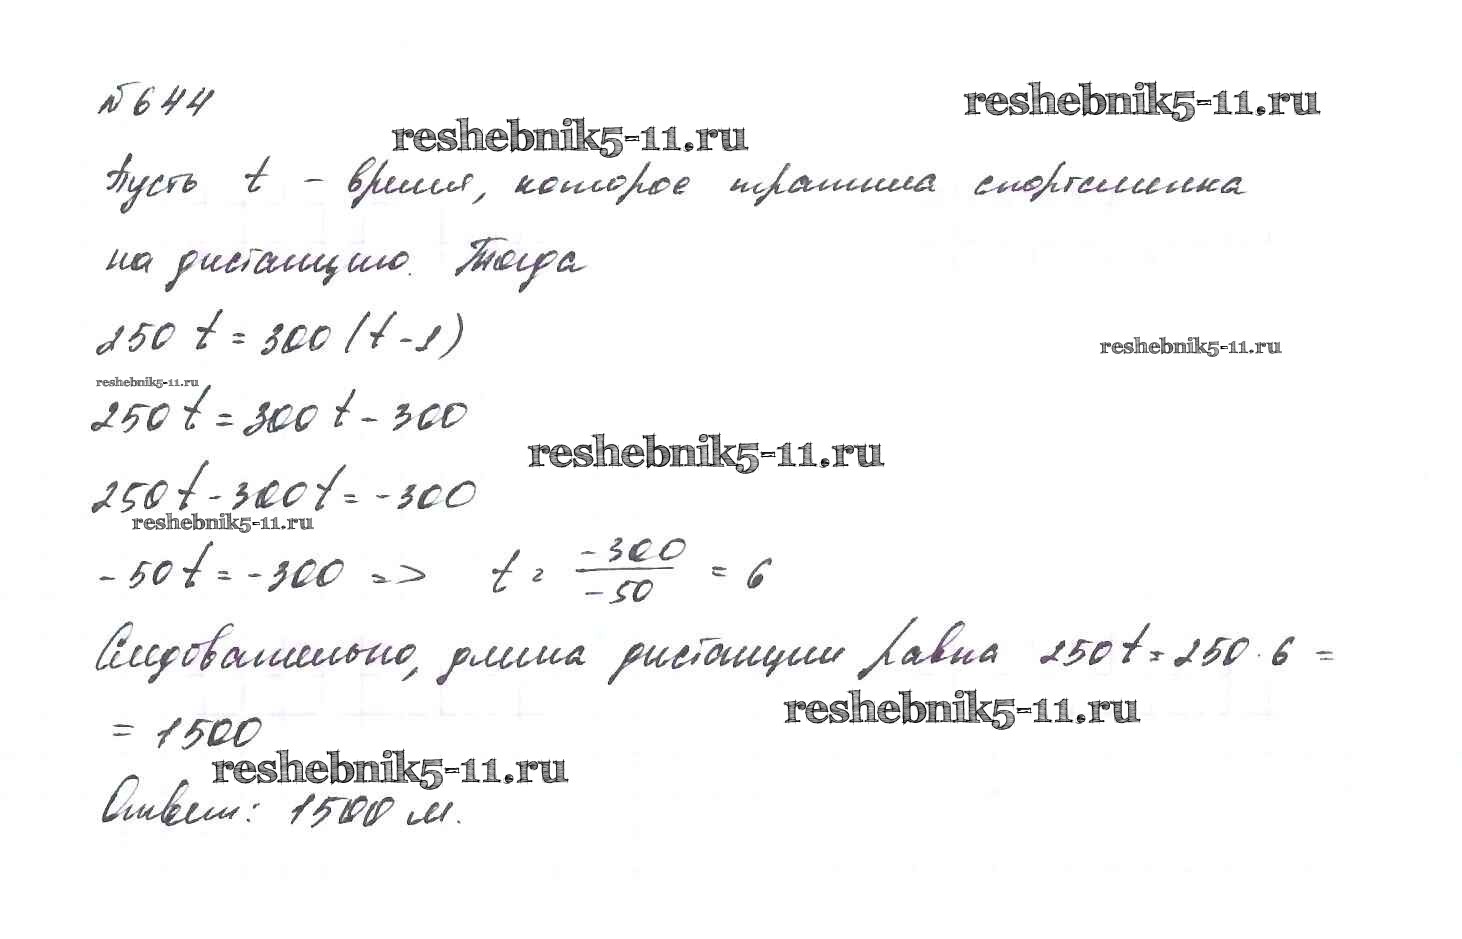 №644
reshebnik5-11.ru
reshebnik5-11.ru
Пусть t - время, которое тратила спортсменка
на дистанцию. Тогда
250 t = 300 (t - 1)
reshebnik5-11.ru
reshebnik5-11.ru
250 t = 300 t - 300
reshebnik5-11.ru
250 t - 300 t = -300
reshebnik5-11.ru
-50 t = -300 => t = -300/-50 = 6
Следовательно, длина дистанции равна 250 t = 250 · 6 =
reshebnik5-11.ru
= 1500
reshebnik5-11.ru
Ответ: 1500 м.